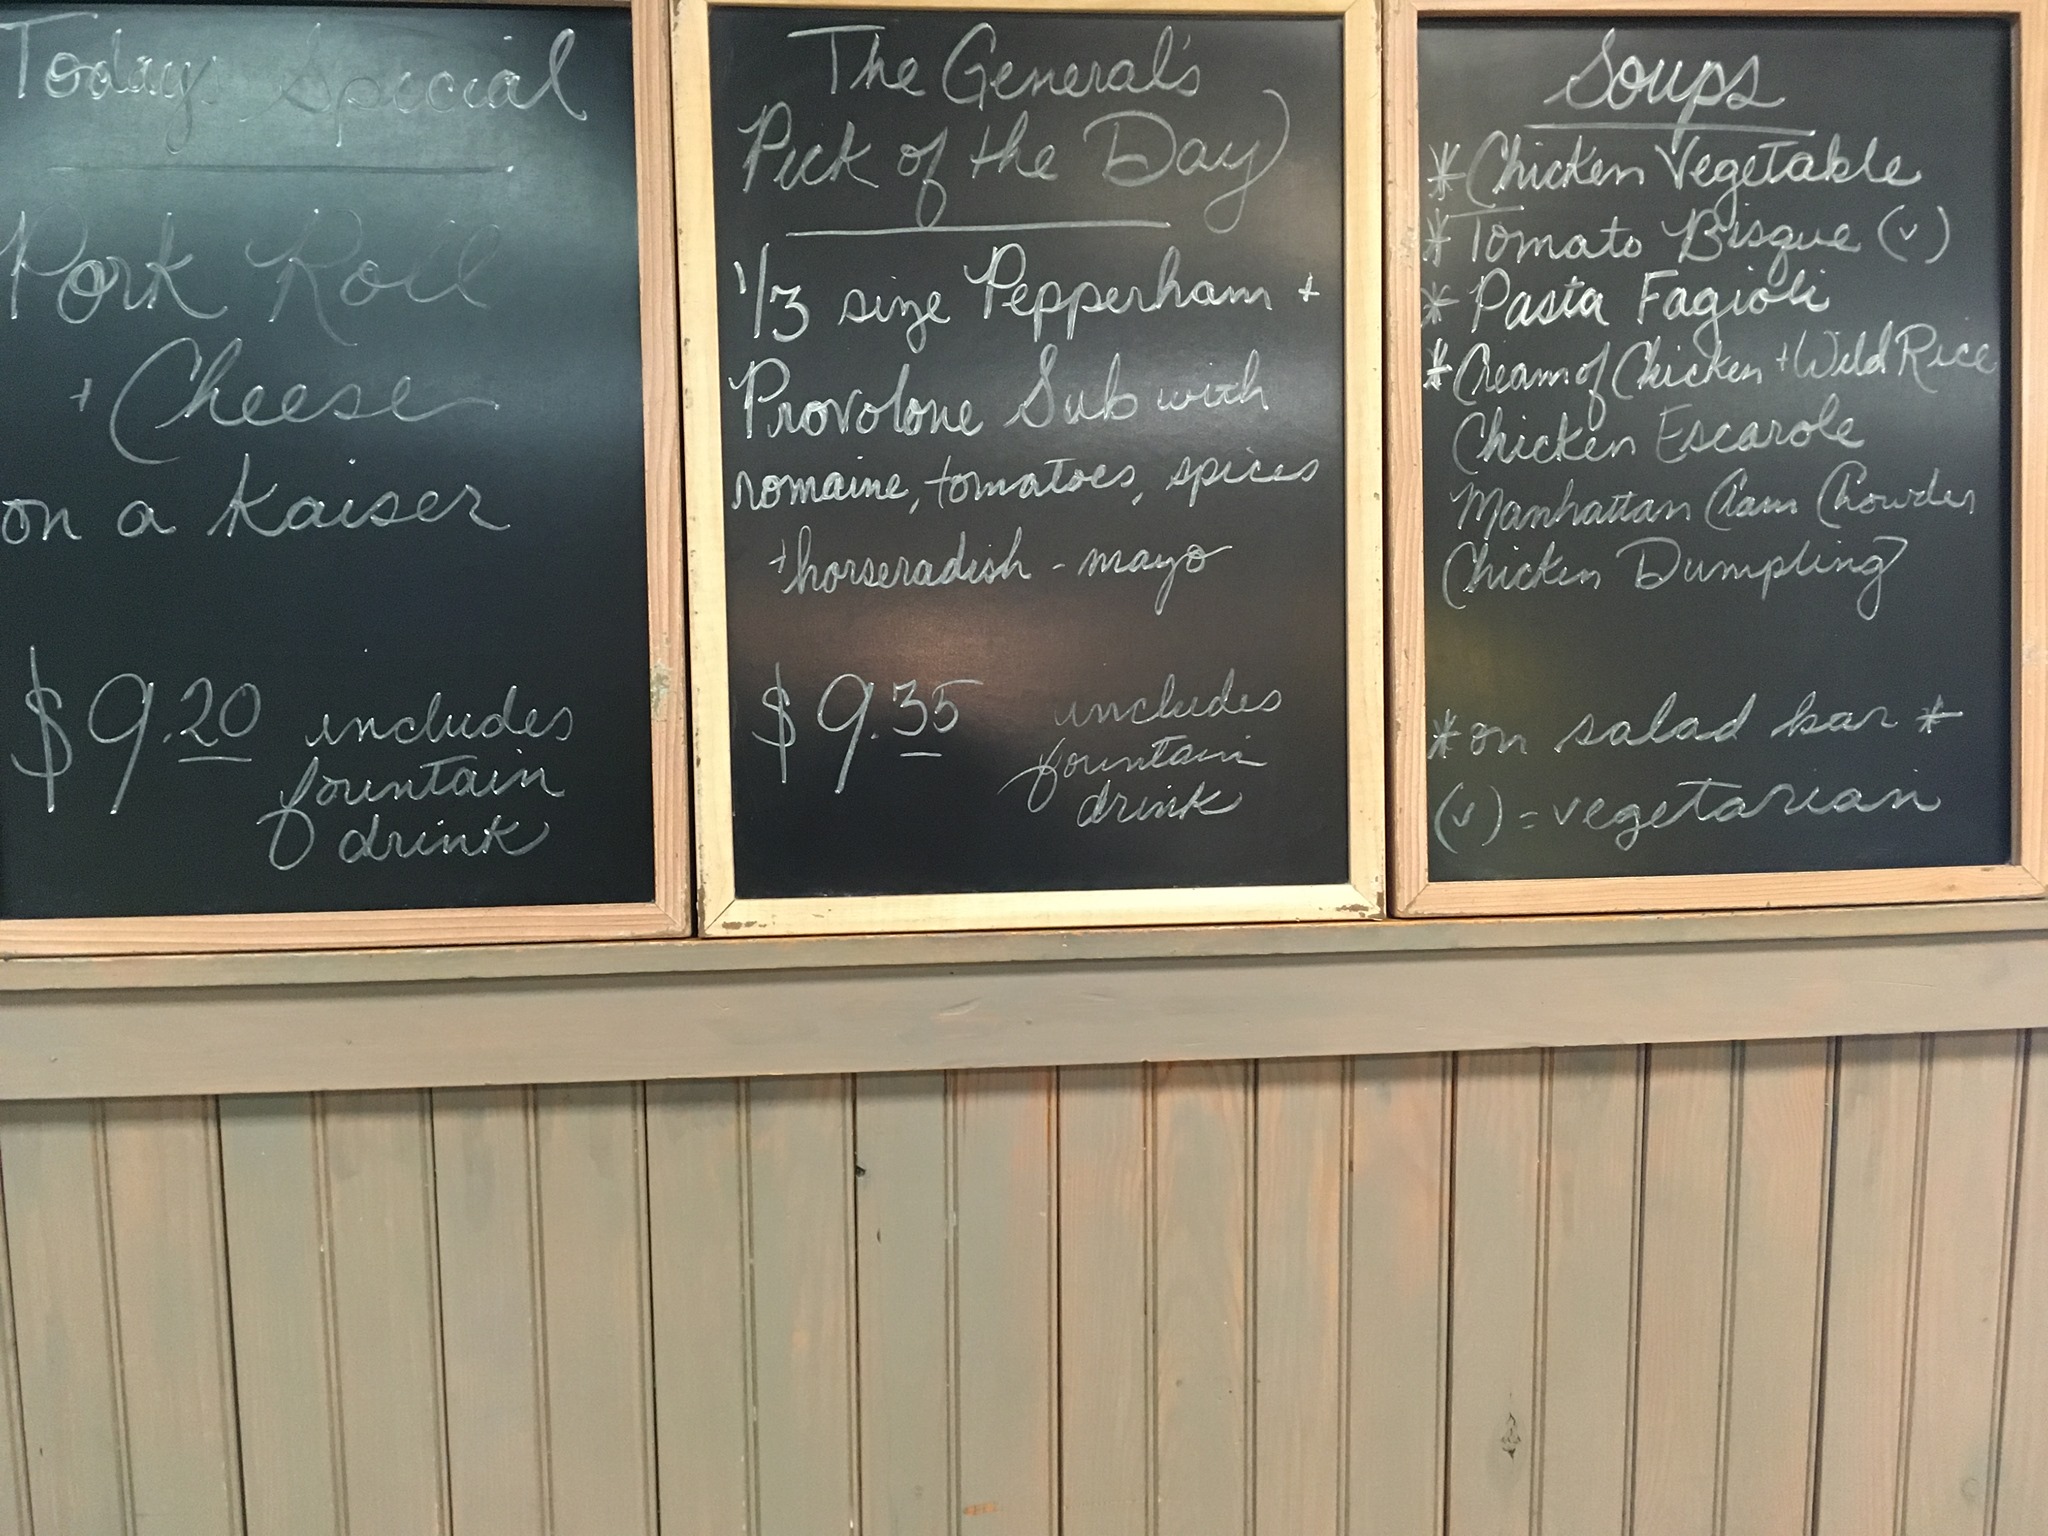 Today's Special
Pork Roll
+ Cheese
on a Kaiser
$9.20 includes
fountain
drink
The General's
Pick of the Day
1/3 size Pepperham +
Provolone Sub with
romaine, tomatoes, spices
+ horseradish - mayo
$9.35 includes
fountain
drink
Soups
* Chicken Vegetable
* Tomato Bisque (v)
* Pasta Fagioli
* Cream of Chicken + Wild Rice
Chicken Escarole
Manhattan Clam Chowder
Chicken Dumpling
* on salad bar *
(v) = vegetarian